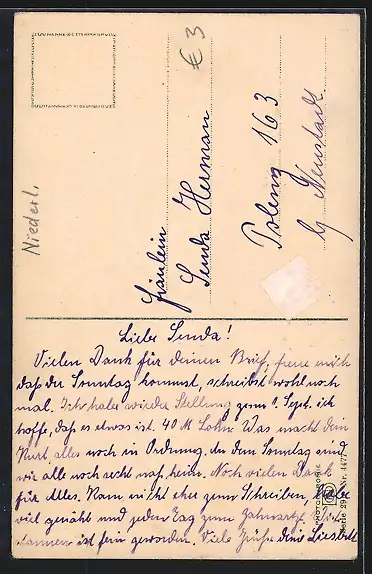 Niederl.
€3
Fräulein
Senda Herman
163
b/ Neustadt
Liebe Senda!
Vielen Dank für deinen Brief, freue mich
daß du Sonntag kommst, schreibst wohl noch
mal. Ich habe wieder Stellung zum 1. Sept. ich
hoffe, daß es etwas ist. 40 M Lohn. Was macht dein
Kurt alles noch in Ordnung. An dem Sonntag sind
wir alle noch recht naß heim. Noch vielen Dank
für Alles. Kam nicht eher zum Schreiben, habe
viel genäht und jeden Tag zum Zahnarzt.
ist fein geworden. Viele Grüße deine Liesbeth
Serie Nr. 4477